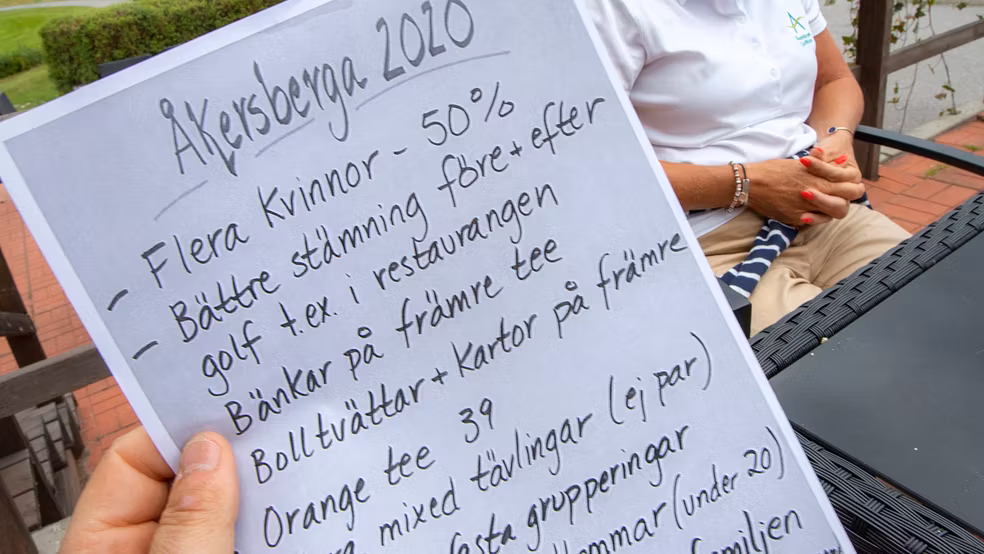 Åkersberga 2020
- Flera Kvinnor - 50%
- Bättre stämning före + efter
golf t.ex. i restaurangen
Bänkar på främre tee
Bolltvättar + Kartor på främre
Orange tee 39
mixed tävlingar (ej par)
grupperingar
(under 20)
familjen